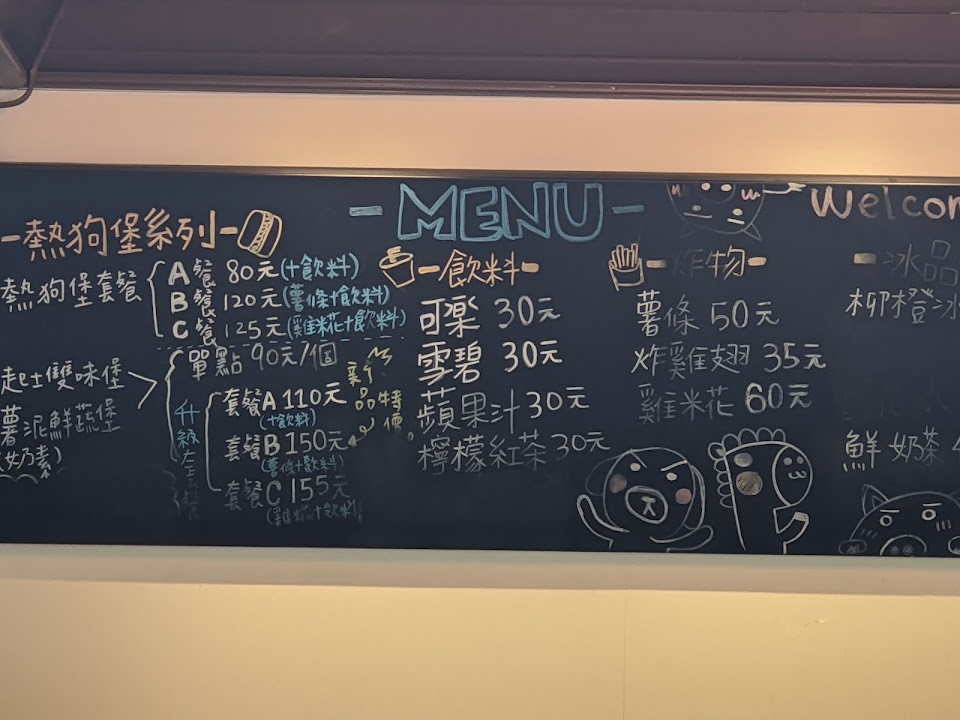 -MENU-
Welcom
-熱狗堡系列-
熱狗堡套餐
A餐 80元(+飲料)
B餐 120元(薯條+飲料)
C餐 125元(雞米花+飲料)
起士雙味堡
薯泥鮮蔬堡
奶素)
單點 90元/個
新品特價
升級套餐
套餐A 110元
(+飲料)
套餐B 150元
(薯條+飲料)
套餐C 155元
(雞米花+飲料)
-飲料-
可樂 30元
雪碧 30元
蘋果汁 30元
檸檬紅茶 30元
-炸物-
薯條 50元
炸雞翅 35元
雞米花 60元
-冰品
柳橙冰
鮮奶茶